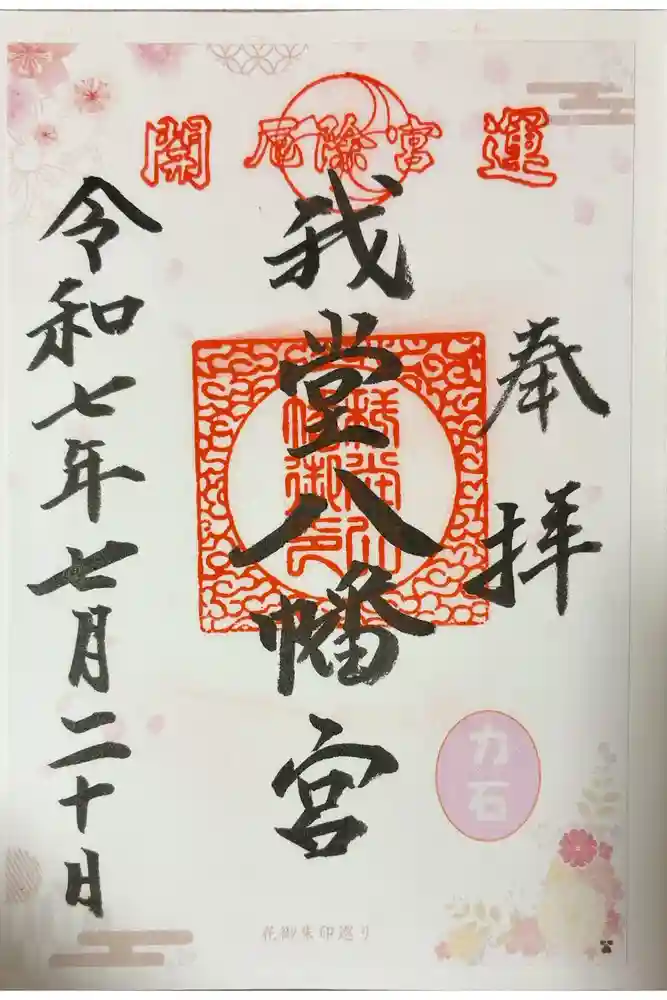 開 厄除宮 運
奉拝
我堂八幡宮
令和七年七月二十日
力石
花御朱印巡り